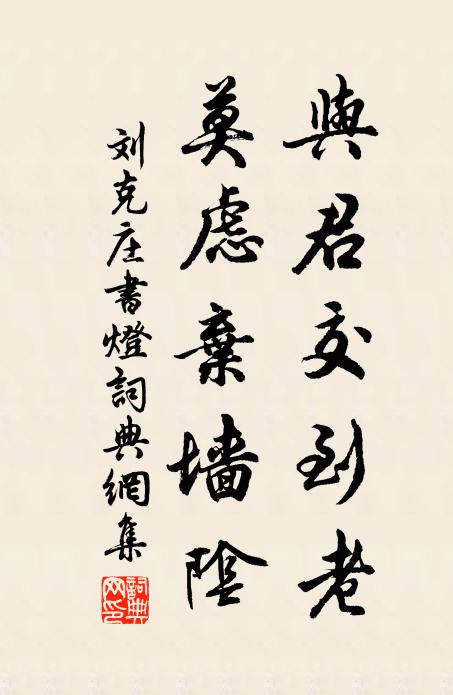 與君交到老
莫慮棄墻陰
刘克庄書燈詞典網集
詞典网印